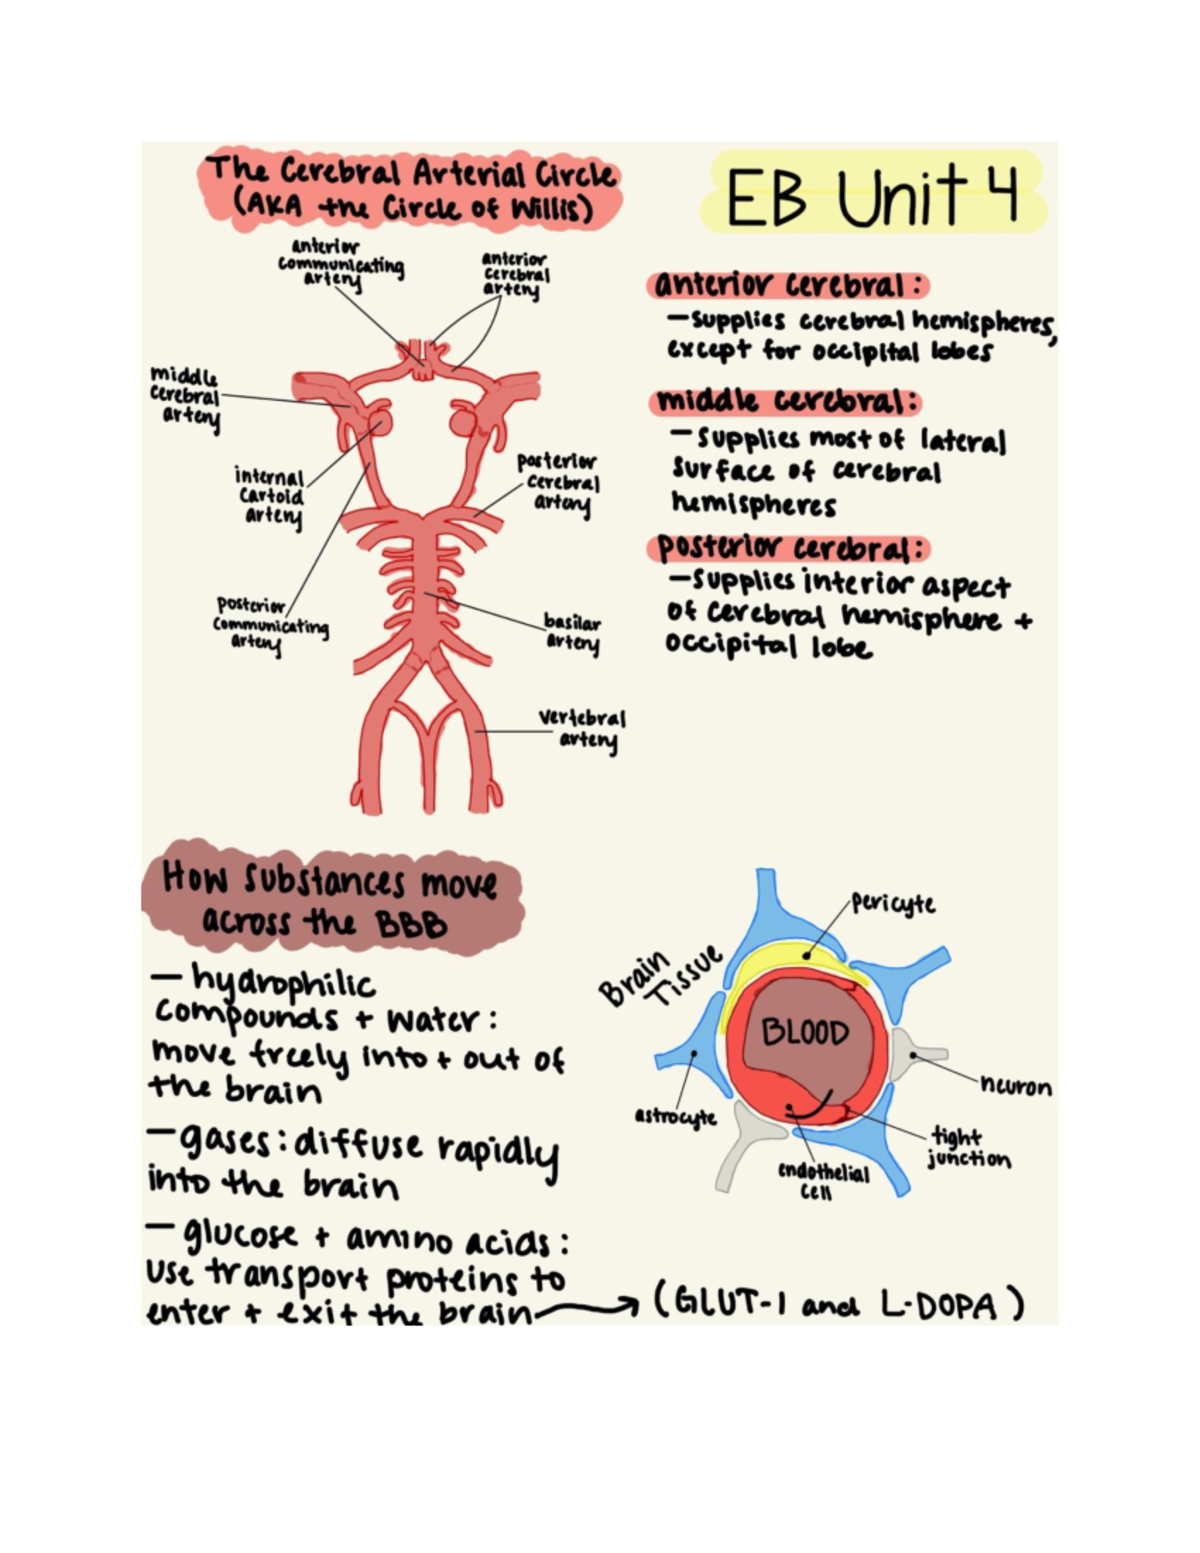 The Cerebral Arterial Circle
(AKA the Circle of Willis)
EB Unit 4
anterior
communicating
artery
anterior
cerebral
artery
middle
cerebral
artery
internal
cartoid
artery
posterior
cerebral
artery
posterior
communicating
artery
basilar
artery
vertebral
artery
anterior cerebral:
—supplies cerebral hemispheres,
except for occipital lobes
middle cerebral:
—supplies most of lateral
surface of cerebral
hemispheres
posterior cerebral:
—supplies interior aspect
of cerebral hemisphere +
occipital lobe
How substances move
across the BBB
— hydrophilic
compounds + water:
move freely into + out of
the brain
—gases: diffuse rapidly
into the brain
—glucose + amino acids:
use transport proteins to
enter + exit the brain → (GLUT-1 and L-DOPA)
pericyte
Brain
Tissue
BLOOD
neuron
astrocyte
tight
junction
endothelial
cell